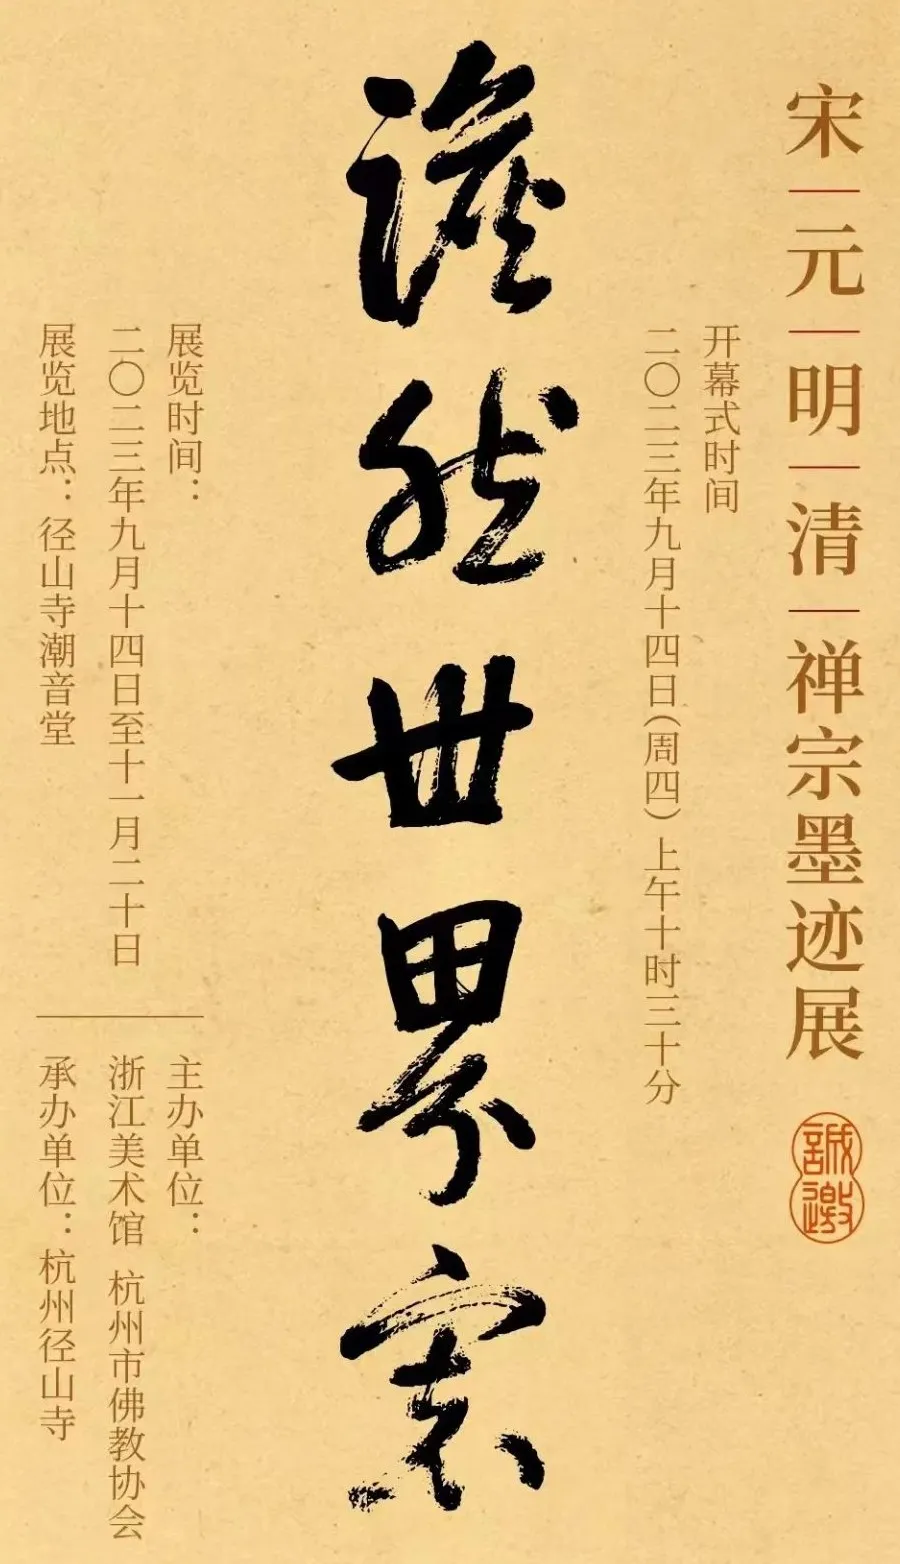 宋元明清禅宗墨迹展
誠邀
开幕式时间
二〇二三年九月十四日(周四)上午十时三十分
澹然世界
展览时间：
二〇二三年九月十四日至十一月二十日
展览地点：径山寺潮音堂
主办单位：
浙江美术馆 杭州市佛教协会
承办单位：杭州径山寺